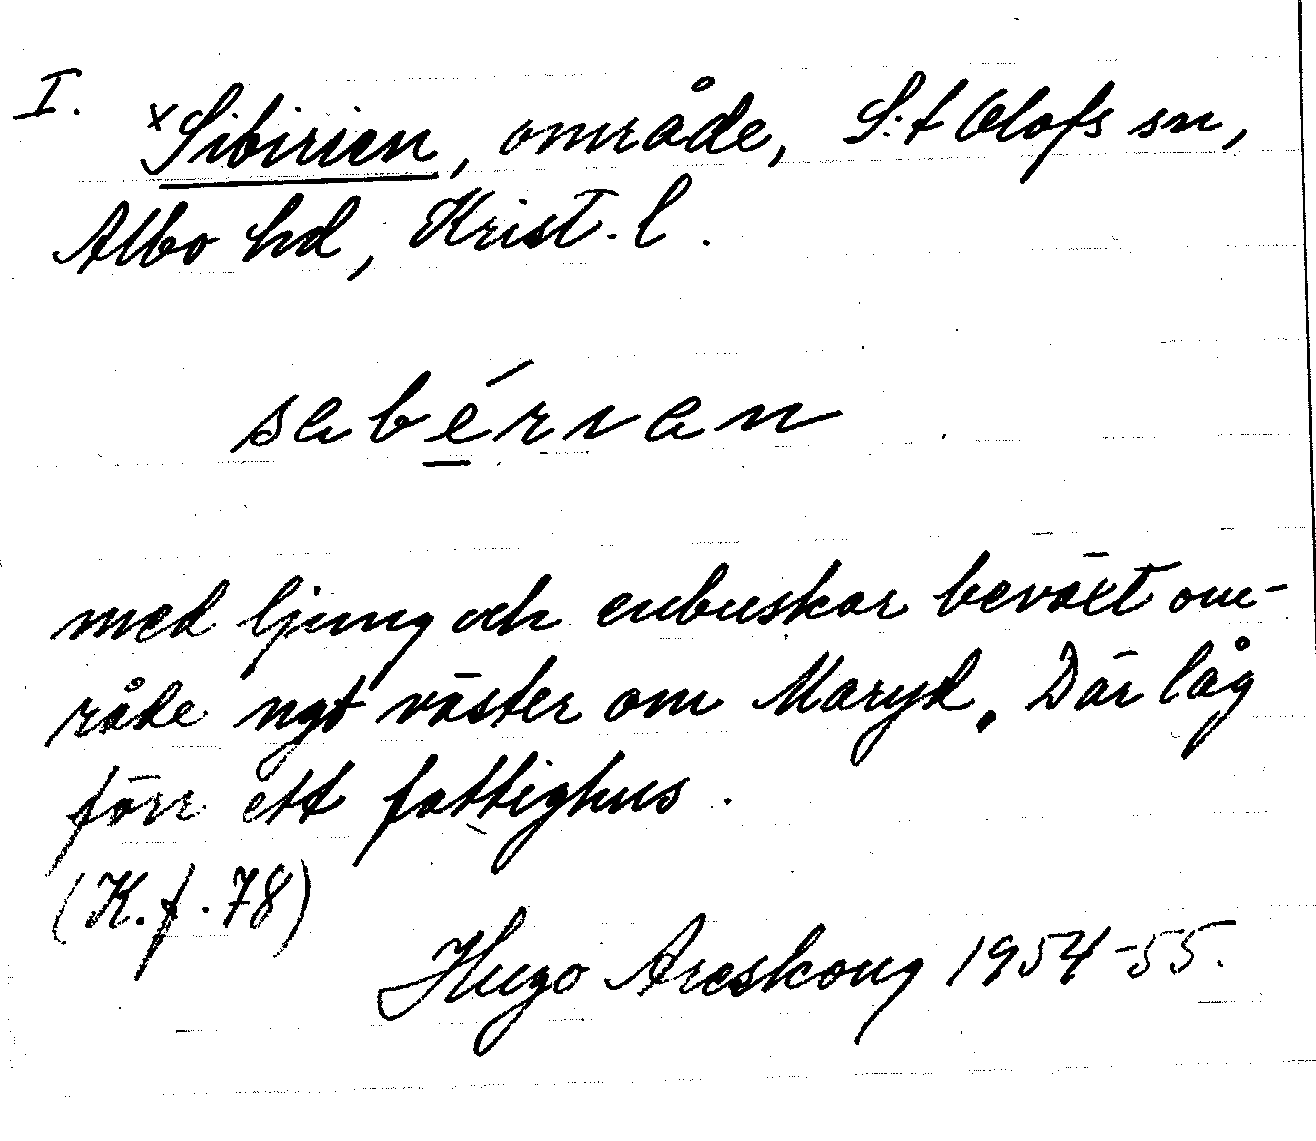 I. ×Sibirien, område, S:t Olofs sn,
Albo hd, Krist. l.
sabérian
med ljung och enbuskar bevãxt om-
råde ngt vãster om Maryd. Dãr låg
fõrr ett fattighus.
(K.f. 78)
Hugo Areskoug 1954-55.